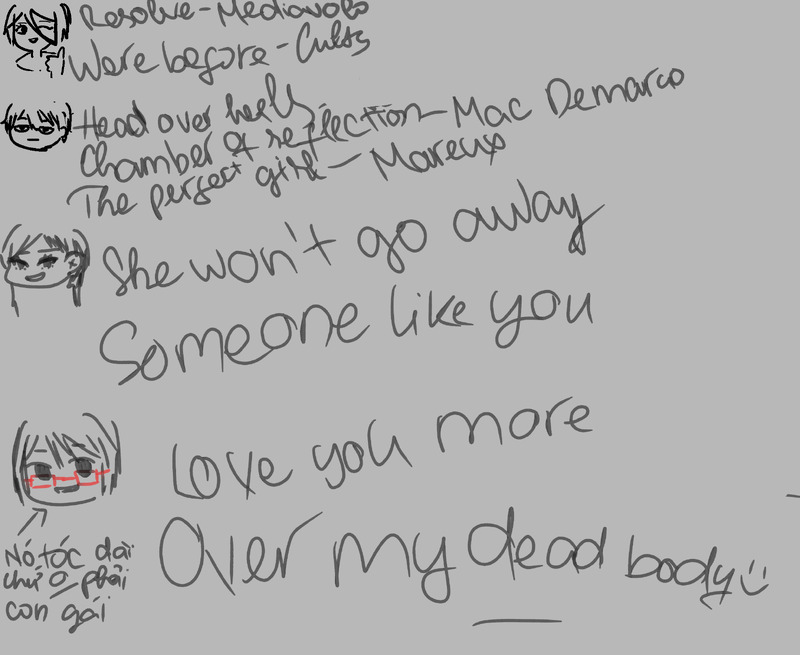 Resolve - Mediavolo
Were before - Cults
Head over heels
Chamber of reflection - Mac Demarco
The perfect girl - Mareux
She won't go away
Someone like you
Love you more
Over my dead body :)
Nó tóc dài
chứ o phải
con gái